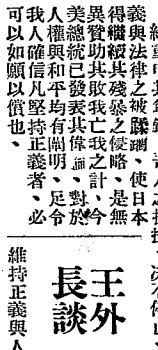 義與法律之被蹂躪、使日本
得繼續其殘暴之侵略、是無
異贊助其敗我亡我之計、今
美總統已發表其偉論、對於
人權與和平均有闡明、足令
我人確信凡堅持正義者、必
可以如願以償也、
王外
長談
維持正義與人